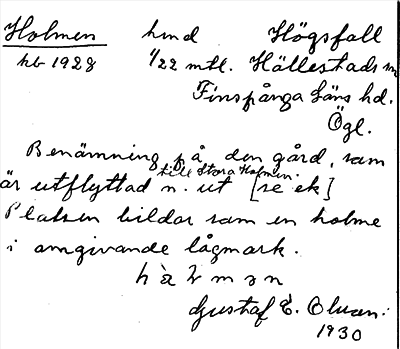 Holmen hmd Högsfall
hb 1928 1/22 mtl. Hällestads sn
Finspånga läns hd.
Ögl.
Benämning på den gård, som
till Stora Holmen.
är utflyttad n. ut [se ek]
Platsen bildar som en holme
i omgivande lågmark.
Gustaf E. Olsson.
1930